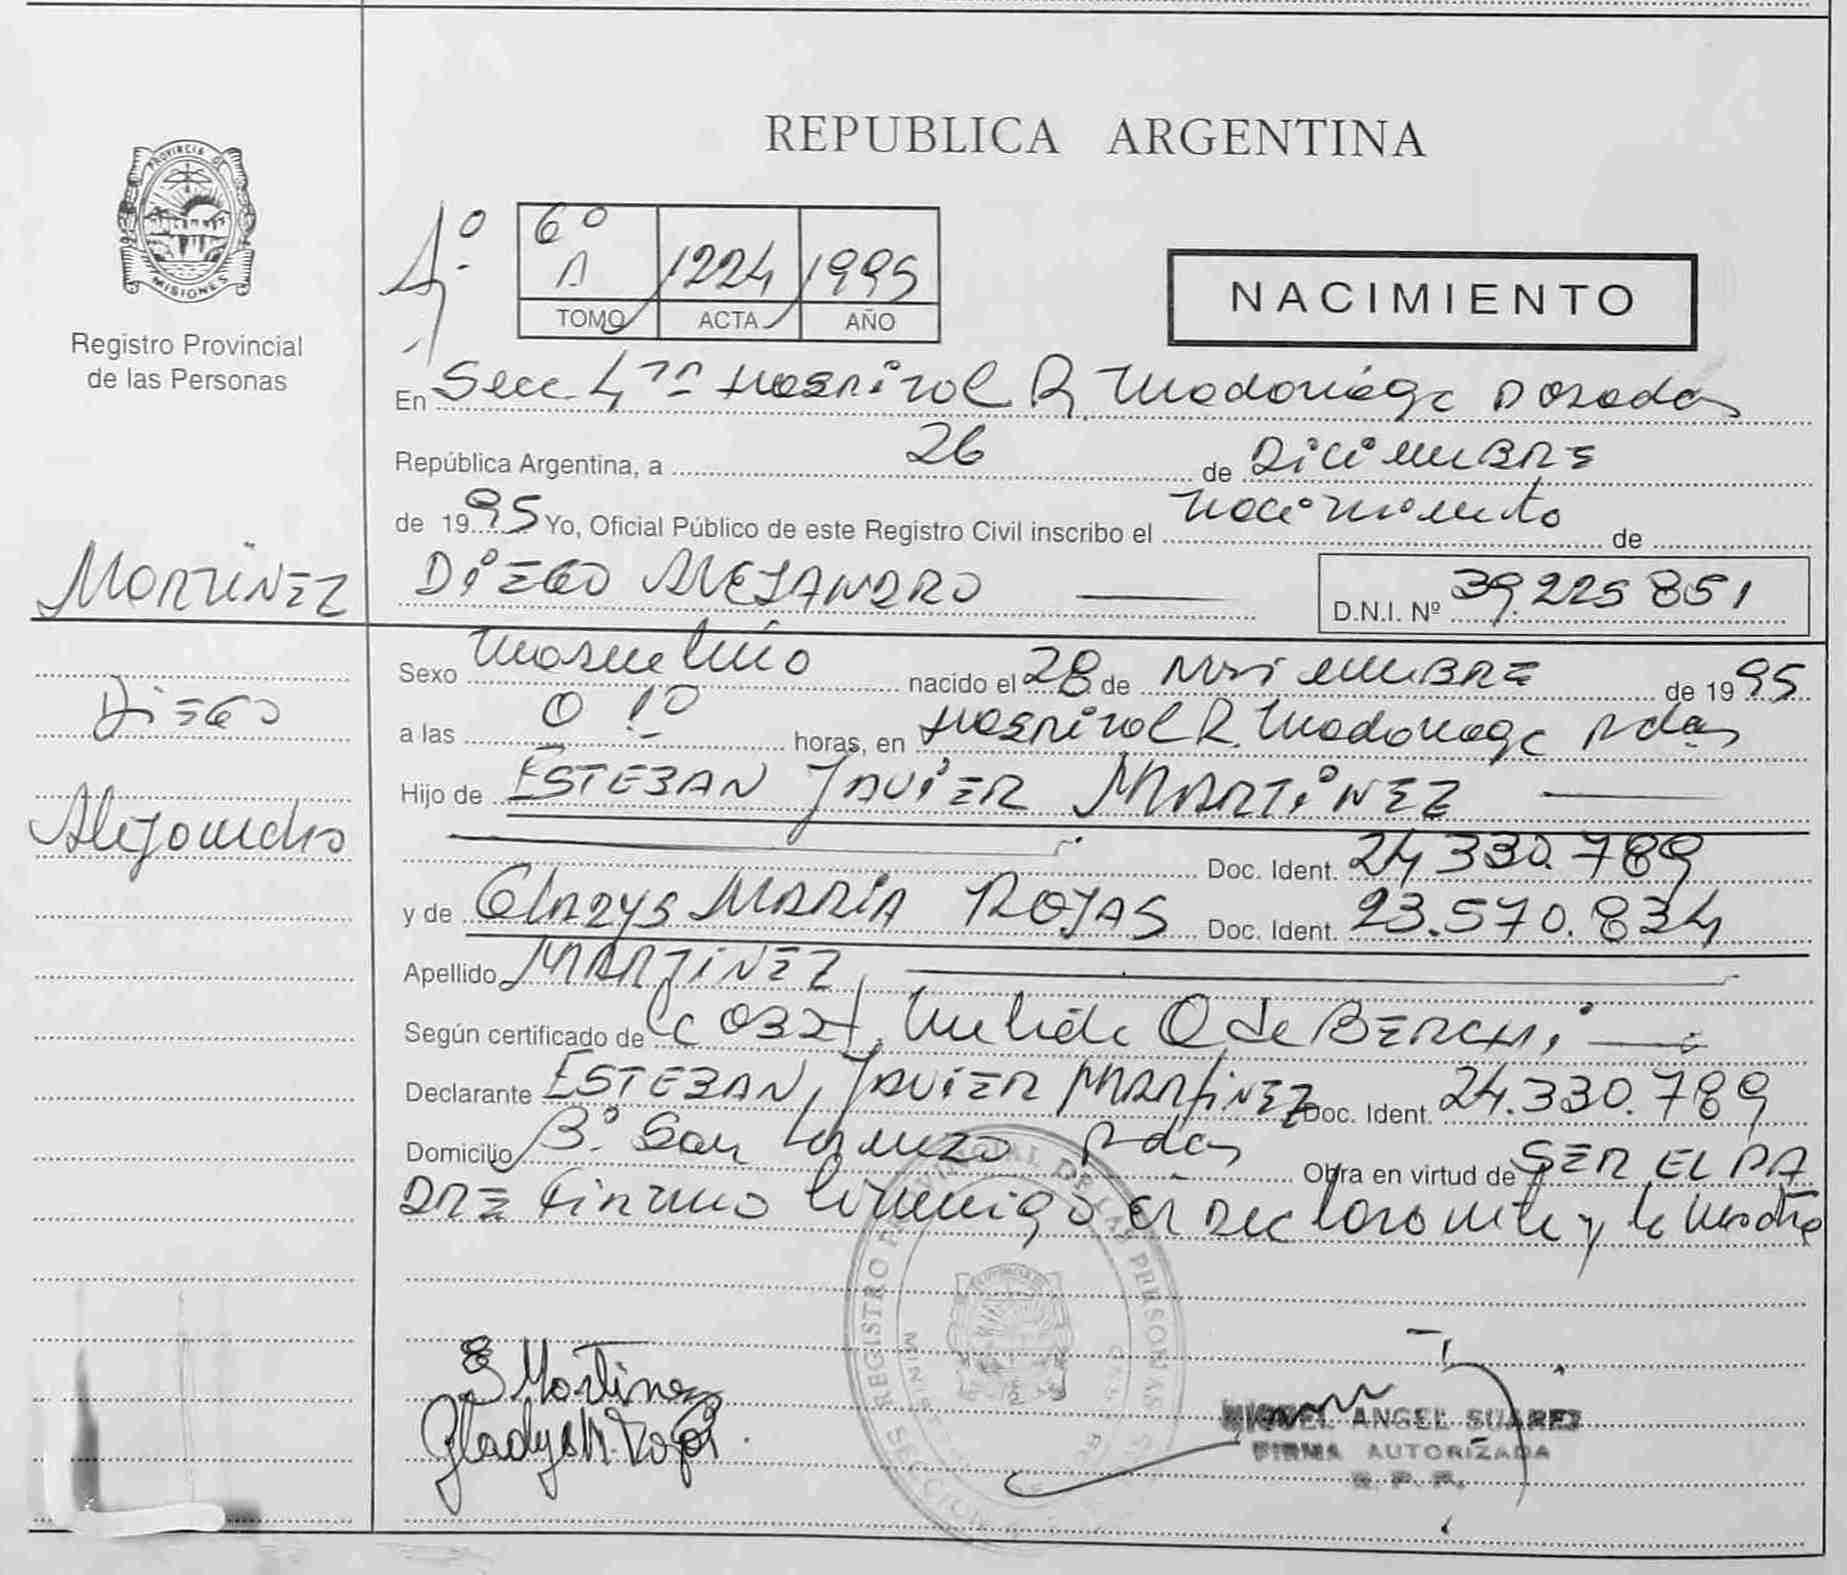 REPUBLICA ARGENTINA
PROVINCIA DE
MISIONES
Registro Provincial
de las Personas
4º
6º
A 1224 1995
TOMO ACTA AÑO
NACIMIENTO
En Secc 4ta Hospital R. Madariaga Posadas
República Argentina, a 26 de DiciEMBRE
de 1995 Yo, Oficial Público de este Registro Civil inscribo el nacimiento de
MARTiNEZ
DiEGO ALEJANDRO
D.N.I. Nº 39.225 851
Sexo masculino nacido el 28 de NoviEMBRE de 1995
Diego
a las 0 10 horas, en Hospital R. Madariaga Pdas
Hijo de ESTEBAN JAViER MARTiNEZ
Alejandro
Doc. Ident. 24 330.789
y de GLADYS MARiA ROJAS Doc. Ident. 23.570.834
Apellido MARTiNEZ
Según certificado de Obst Q de BERCHi
Declarante ESTEBAN JAViER MARTiNEZ Doc. Ident. 24.330.789
Domicilio Bº San Lorenzo Pdas Obra en virtud de SER EL PA
DRE Firman conmigo el Declarante y la Madre
REGISTRO PROVINCIAL DE LAS PERSONAS
SECCION
E Martinez
Gladys M. Rojas.
MIGUEL ANGEL SUAREZ
FIRMA AUTORIZADA
R. P. P.